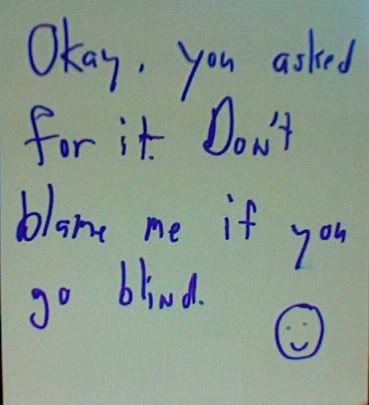 Okay, you asked
for it. Don't
blame me if you
go blind.